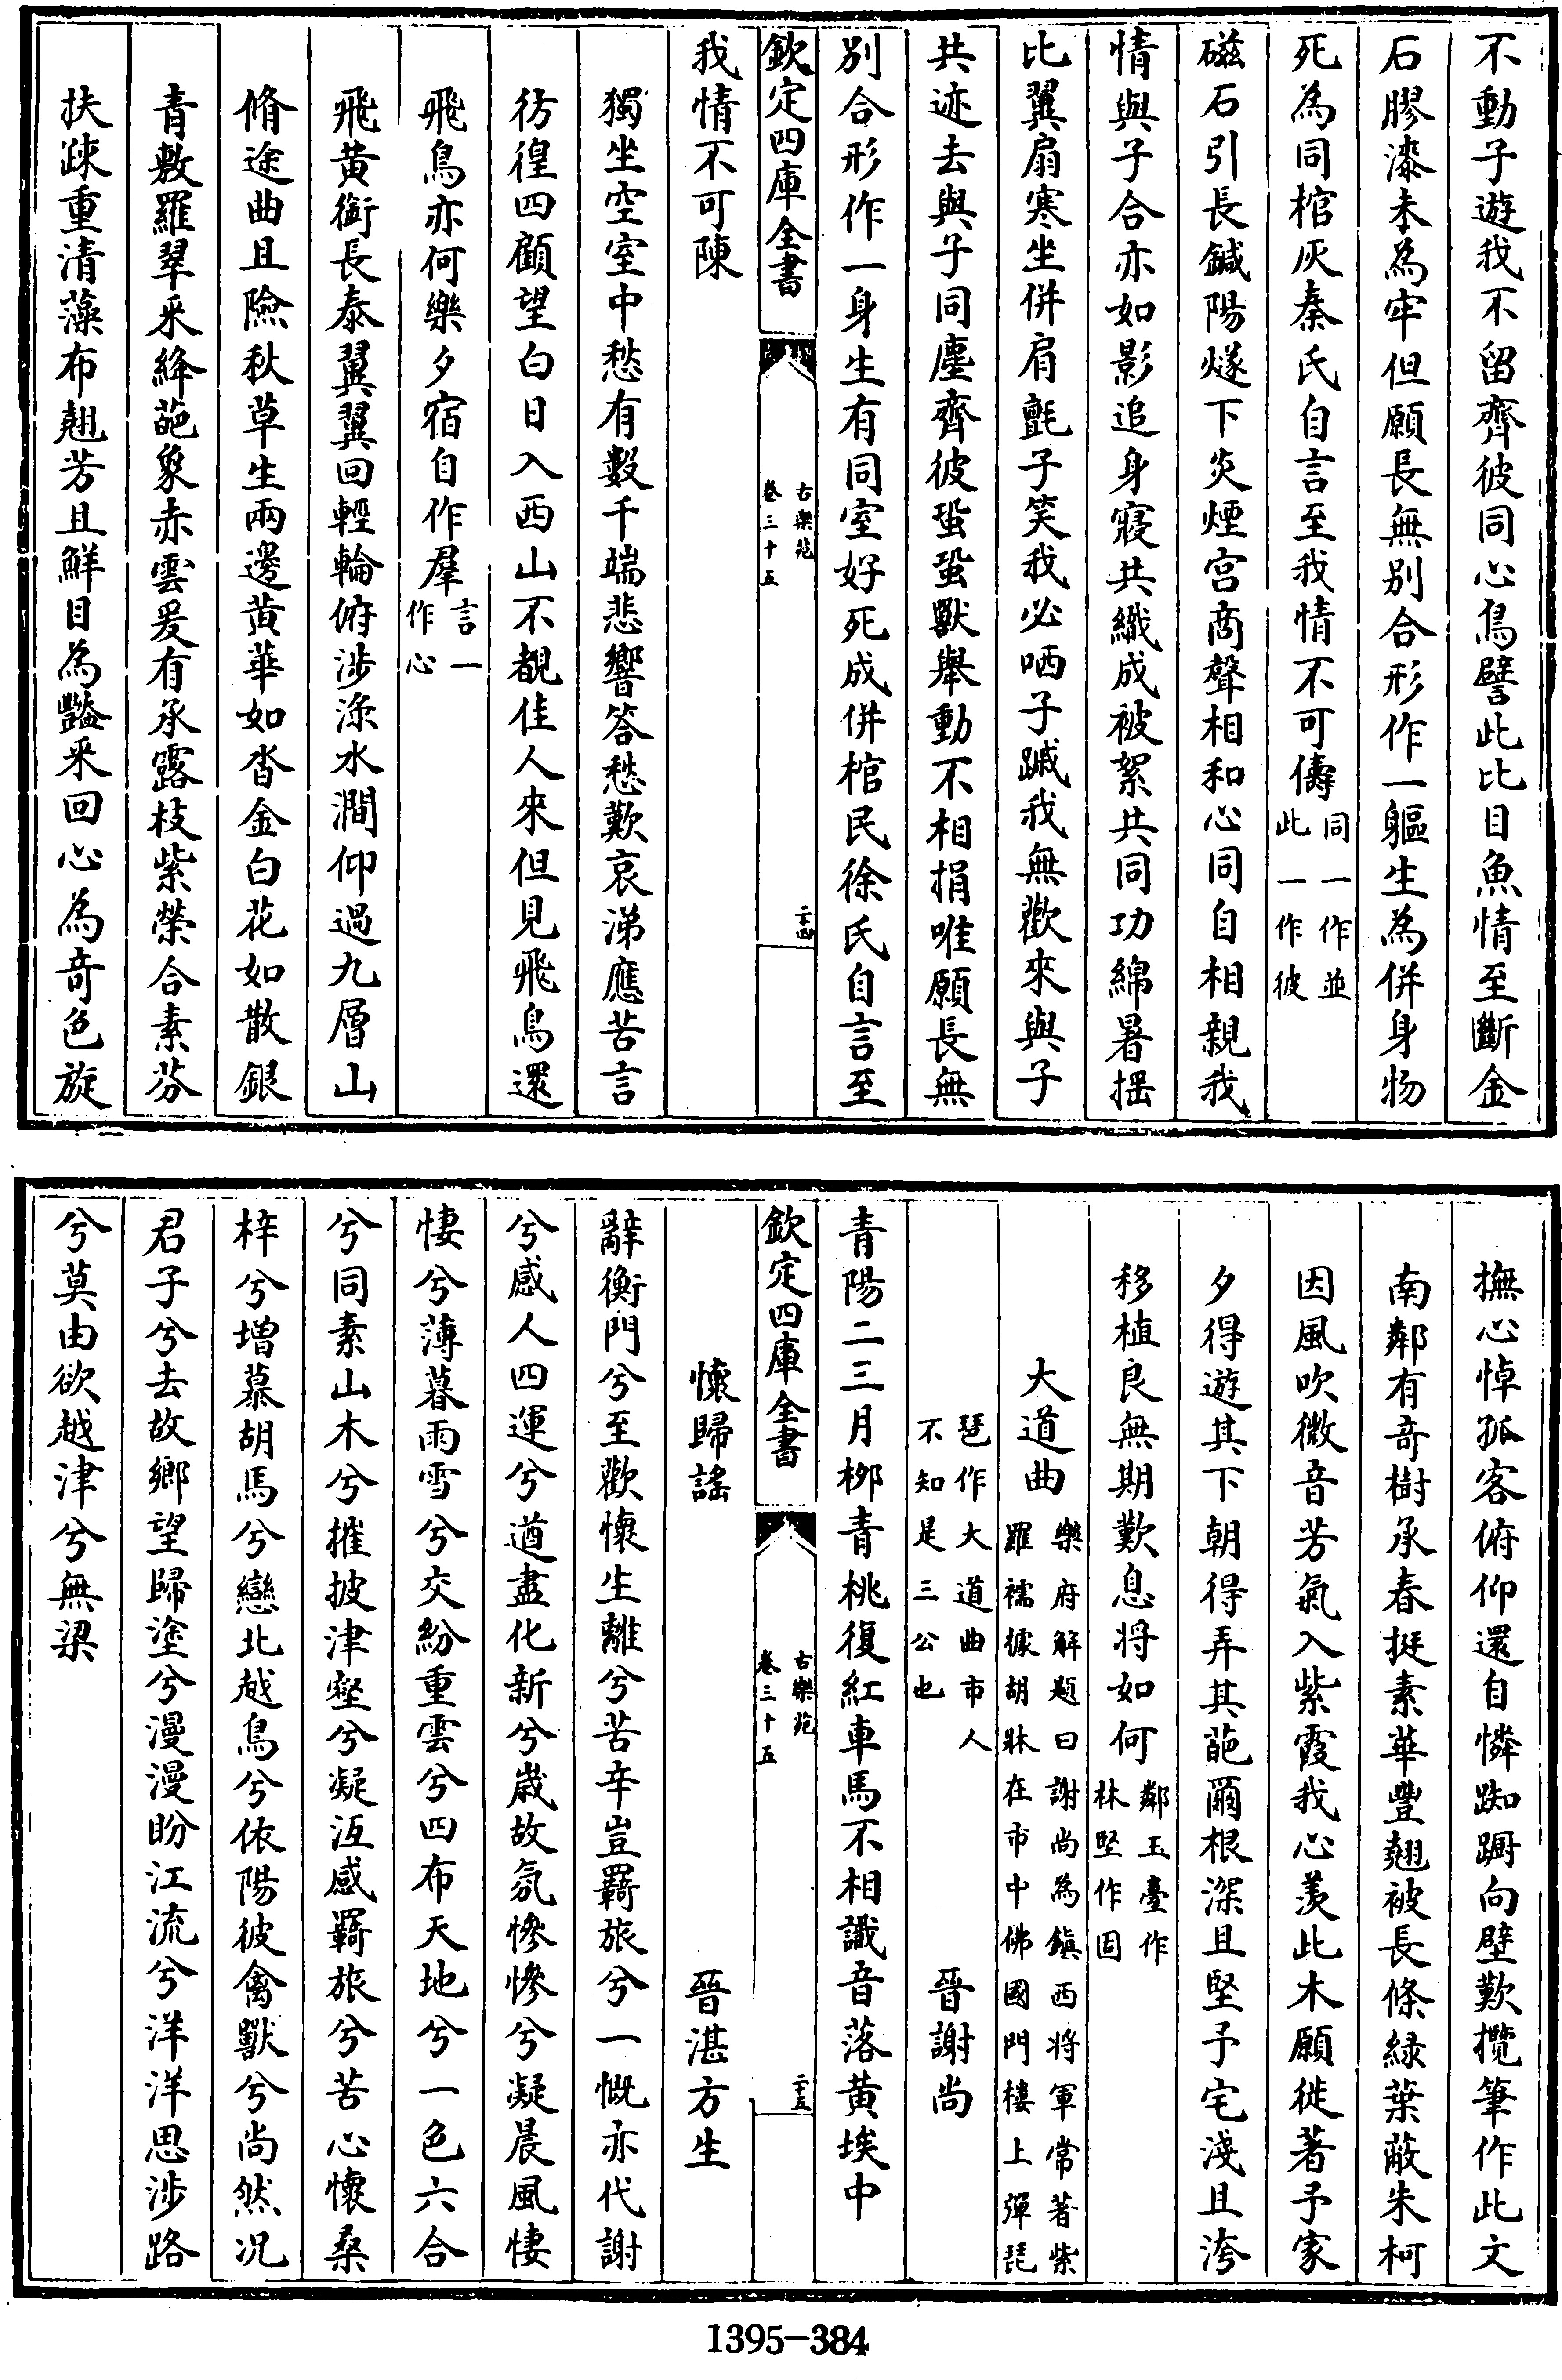 不動子遊我不留齊彼同心鳥譬此比目魚情至斷金
石膠漆未為牢但願長無別合形作一軀生為併身物
死為同棺灰秦氏自言至我情不可儔同一作並此一作彼
磁石引長鍼陽燧下炎煙宫商聲相和心同自相親我
情與子合亦如影追身寢共織成被絮共同功綿暑摇
比翼扇寒坐併肩氈子笑我必哂子蹙我無歡來與子
共迹去與子同塵齊彼蛩蛩獸舉動不相捐唯願長無
別合形作一身生有同室好死成併棺民徐氏自言至
欽定四庫全書
古樂苑
卷三十五
二十四
我情不可陳
獨坐空室中愁有數千端悲響答愁歎哀涕應苦言
彷徨四顧望白日入西山不覩佳人來但見飛鳥還
飛鳥亦何樂夕宿自作羣言一作心
飛黄銜長泰翼翼回輕輪俯涉渌水澗仰過九層山
脩途曲且險秋草生兩邊黄華如沓金白花如散銀
青敷羅翠采絳葩象赤雲爰有承露枝紫榮合素芬
扶疎重清藻布翹芳且鮮目為豔采回心為奇色旋
撫心悼孤客俯仰還自憐踟蹰向壁歎攬筆作此文
南鄰有奇樹承春挺素華豐翹被長條緑葉蔽朱柯
因風吹微音芳氣入紫霞我心羡此木願徙著予家
夕得遊其下朝得弄其葩爾根深且堅予宅淺且洿
移植良無期歎息将如何鄰玉臺作林堅作固
大道曲樂府解題曰謝尚為鎮西将軍常著紫羅襦據胡牀在市中佛國門樓上彈琵
琶作大道曲市人不知是三公也　晉謝尚
青陽二三月栁青桃復紅車馬不相識音落黄埃中
欽定四庫全書
古樂苑
卷三十五
二十五
懐歸謠　晉湛方生
辭衡門兮至歡懐生離兮苦辛豈羇旅兮一慨亦代謝
兮感人四運兮遒盡化新兮歳故氛慘慘兮凝晨風悽
悽兮薄暮雨雪兮交紛重雲兮四布天地兮一色六合
兮同素山木兮摧披津壑兮凝沍感羇旅兮苦心懐桑
梓兮增慕胡馬兮戀北越鳥兮依陽彼禽獸兮尚然况
君子兮去故鄉望歸塗兮漫漫盼江流兮洋洋思涉路
兮莫由欲越津兮無梁
1395-384